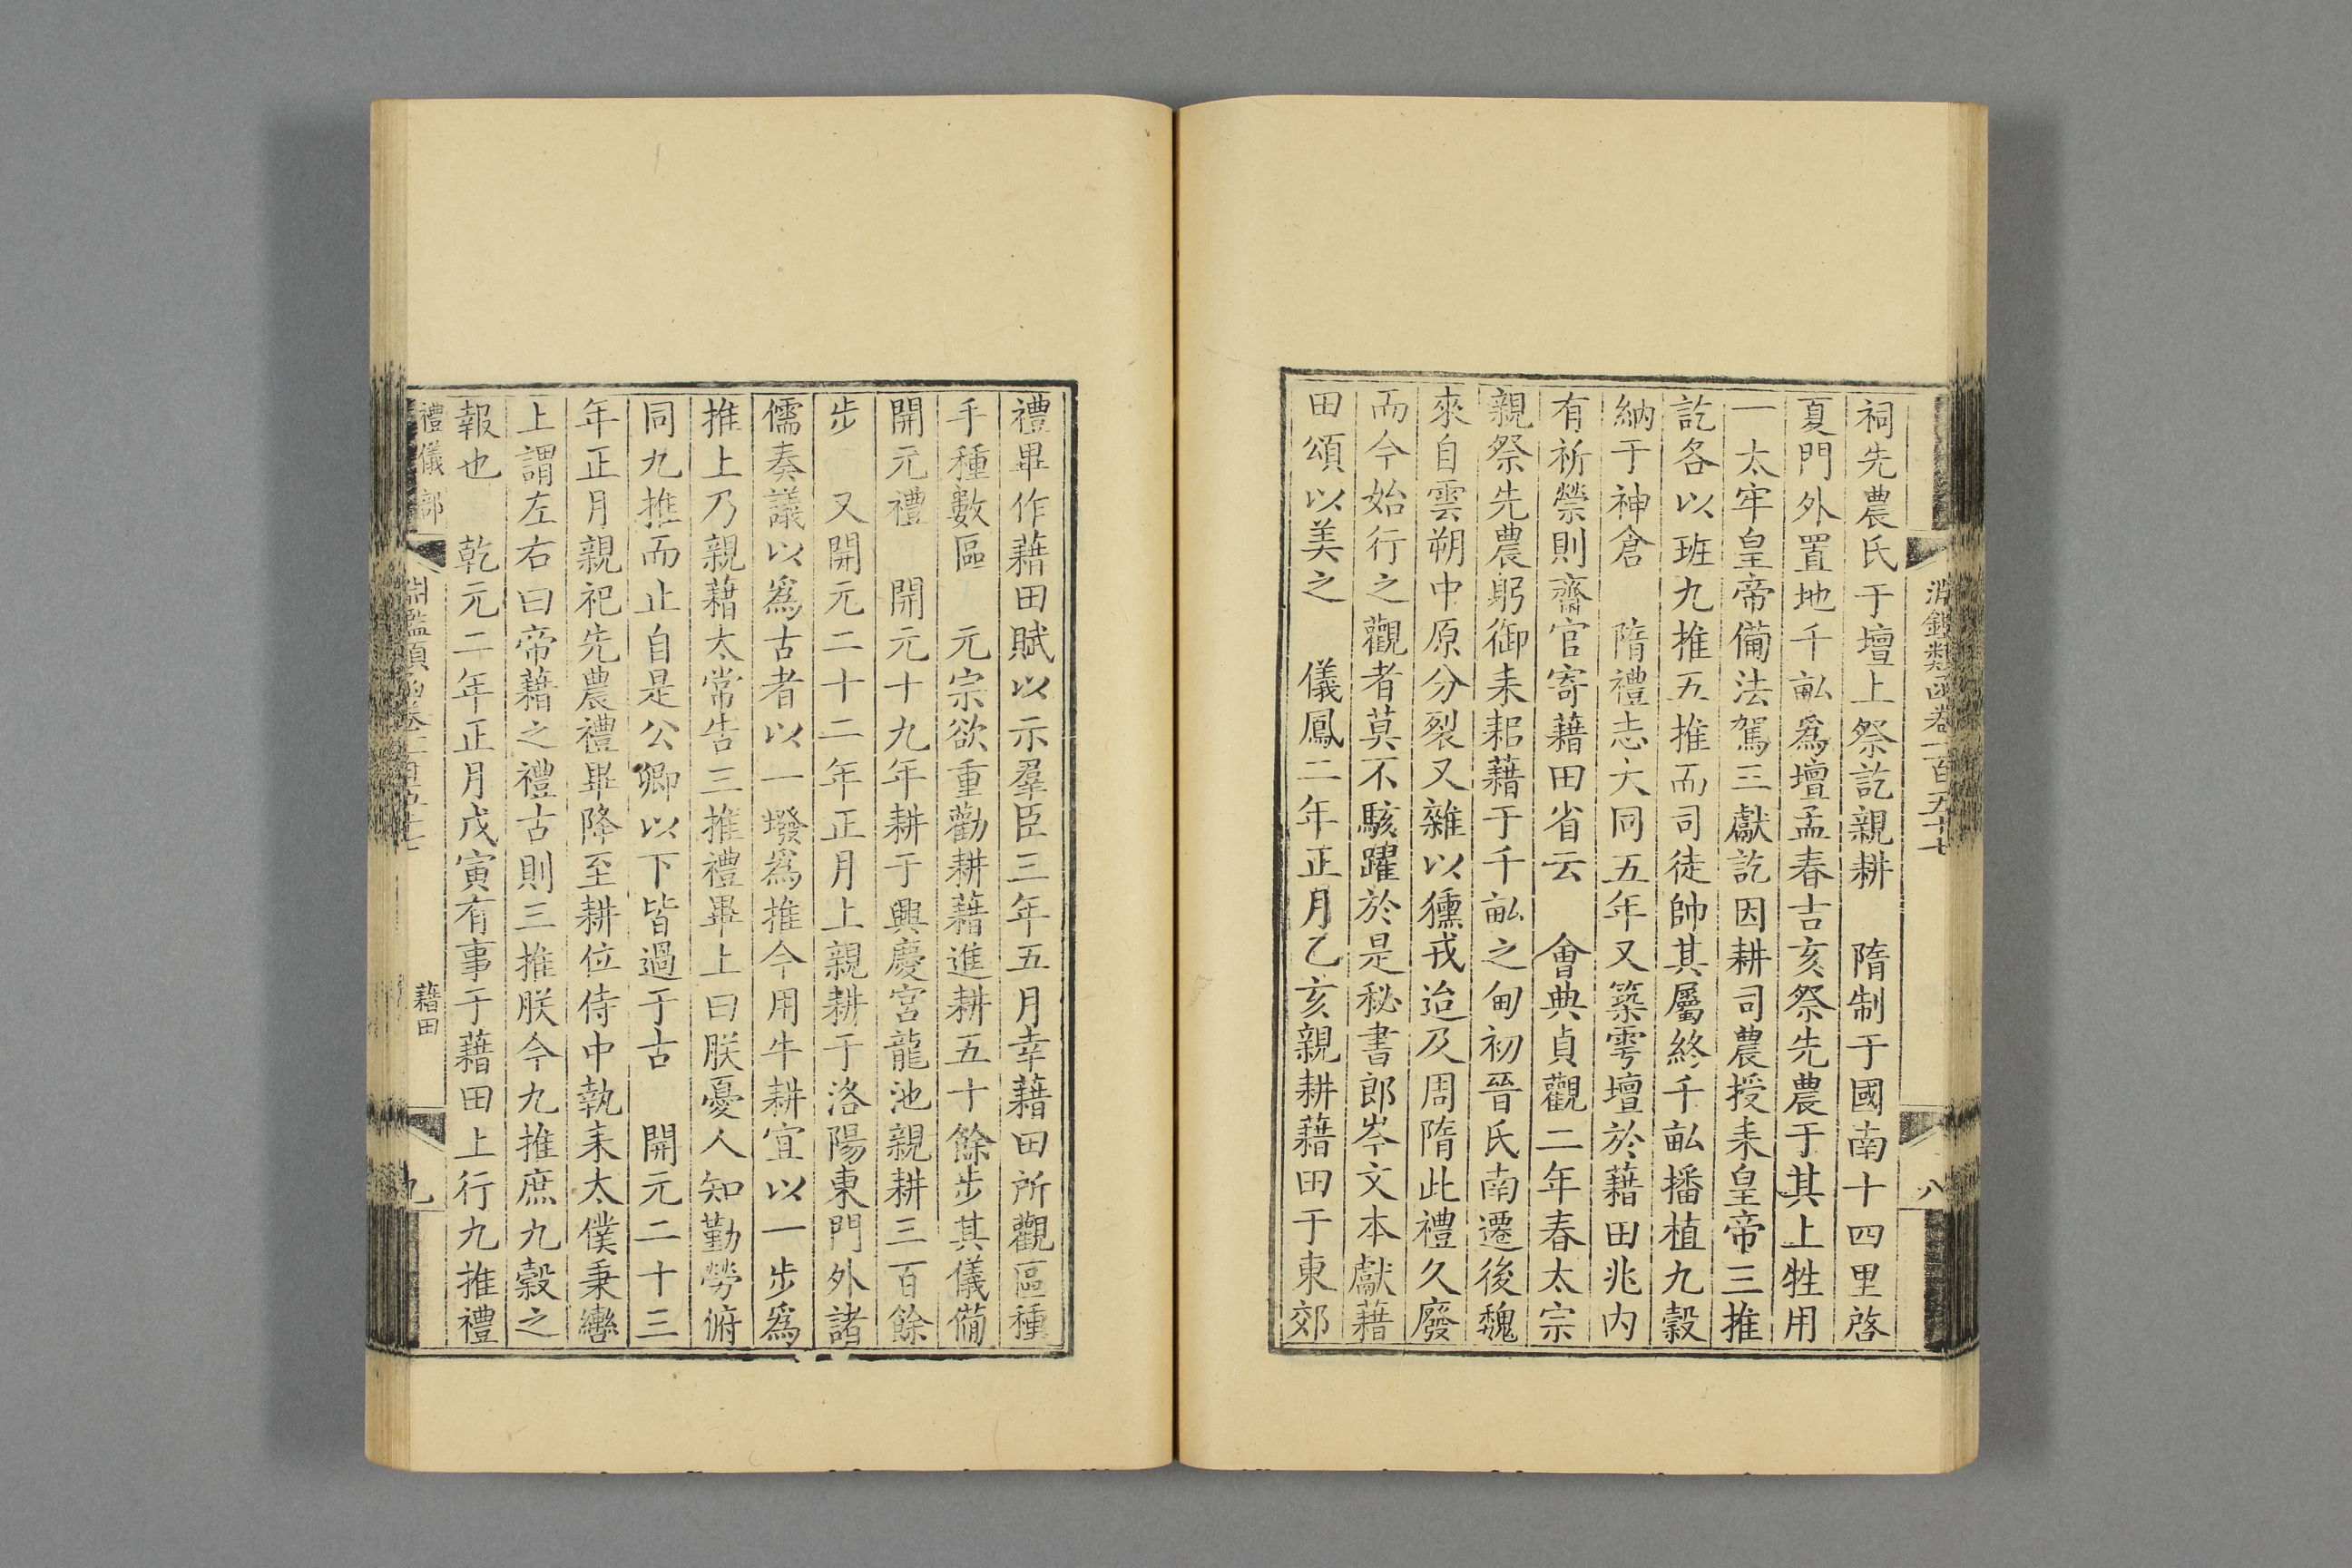 淵鑑類函卷一百五十七
八
祠先農氏于壇上祭訖親耕　隋制于國南十四里啓
夏門外置地千畝爲壇孟春吉亥祭先農于其上牲用
一太牢皇帝備法駕三獻訖因耕司農授耒皇帝三推
訖各以班九推五推而司徒帥其屬終千畝播植九穀
納于神倉　隋禮志大同五年又築雩壇於藉田兆內
有祈禜則齋官寄藉田省云　會典貞觀二年春太宗
親祭先農躬御耒耜藉于千畝之甸初晉氏南遷後魏
來自雲朔中原分裂又雜以獯戎迨及周隋此禮久廢
而今始行之觀者莫不駭躍於是秘書郎岑文本獻藉
田頌以美之　儀鳳二年正月乙亥親耕藉田于東郊
禮畢作藉田賦以示羣臣三年五月幸藉田所觀區種
手種數區　元宗欲重勸耕藉進耕五十餘步其儀備
開元禮　開元十九年耕于興慶宮龍池親耕三百餘
步　又開元二十二年正月上親耕于洛陽東門外諸
儒奏議以爲古者以一墢爲推今用牛耕宜以一步爲
推上乃親藉太常告三推禮畢上曰朕憂人知勤勞俯
同九推而止自是公卿以下皆過于古　開元二十三
年正月親祀先農禮畢降至耕位侍中執耒太僕秉轡
上謂左右曰帝藉之禮古則三推朕今九推庶九穀之
報也　乾元二年正月戊寅有事于藉田上行九推禮
禮儀部
淵鑑類函卷一百五十七
藉田
九